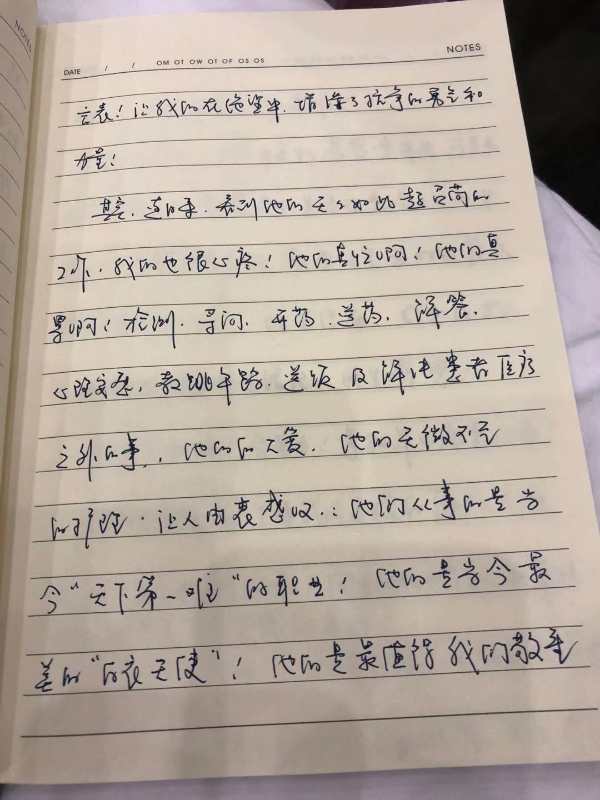 NOTES
DATE / / OM OT OW OT OF OS OS
NOTES
言表！让我们在绝望中，增添了抗争的勇气和
力量！
其实，这些日子，看到他们天天如此超负荷的
工作，我们也很心疼！他们真忙啊！他们真
累啊！检测，寻问，开药，送药，解答，
心理安慰，教跳舞蹈，送饭及解决患者医疗
之外的事，他们的大爱，他们无微不至
的护理，让人由衷感叹：他们从事的是当
今“天下第一难”的职业！他们是当今最
美的“白衣天使”！他们是最值得我们敬重